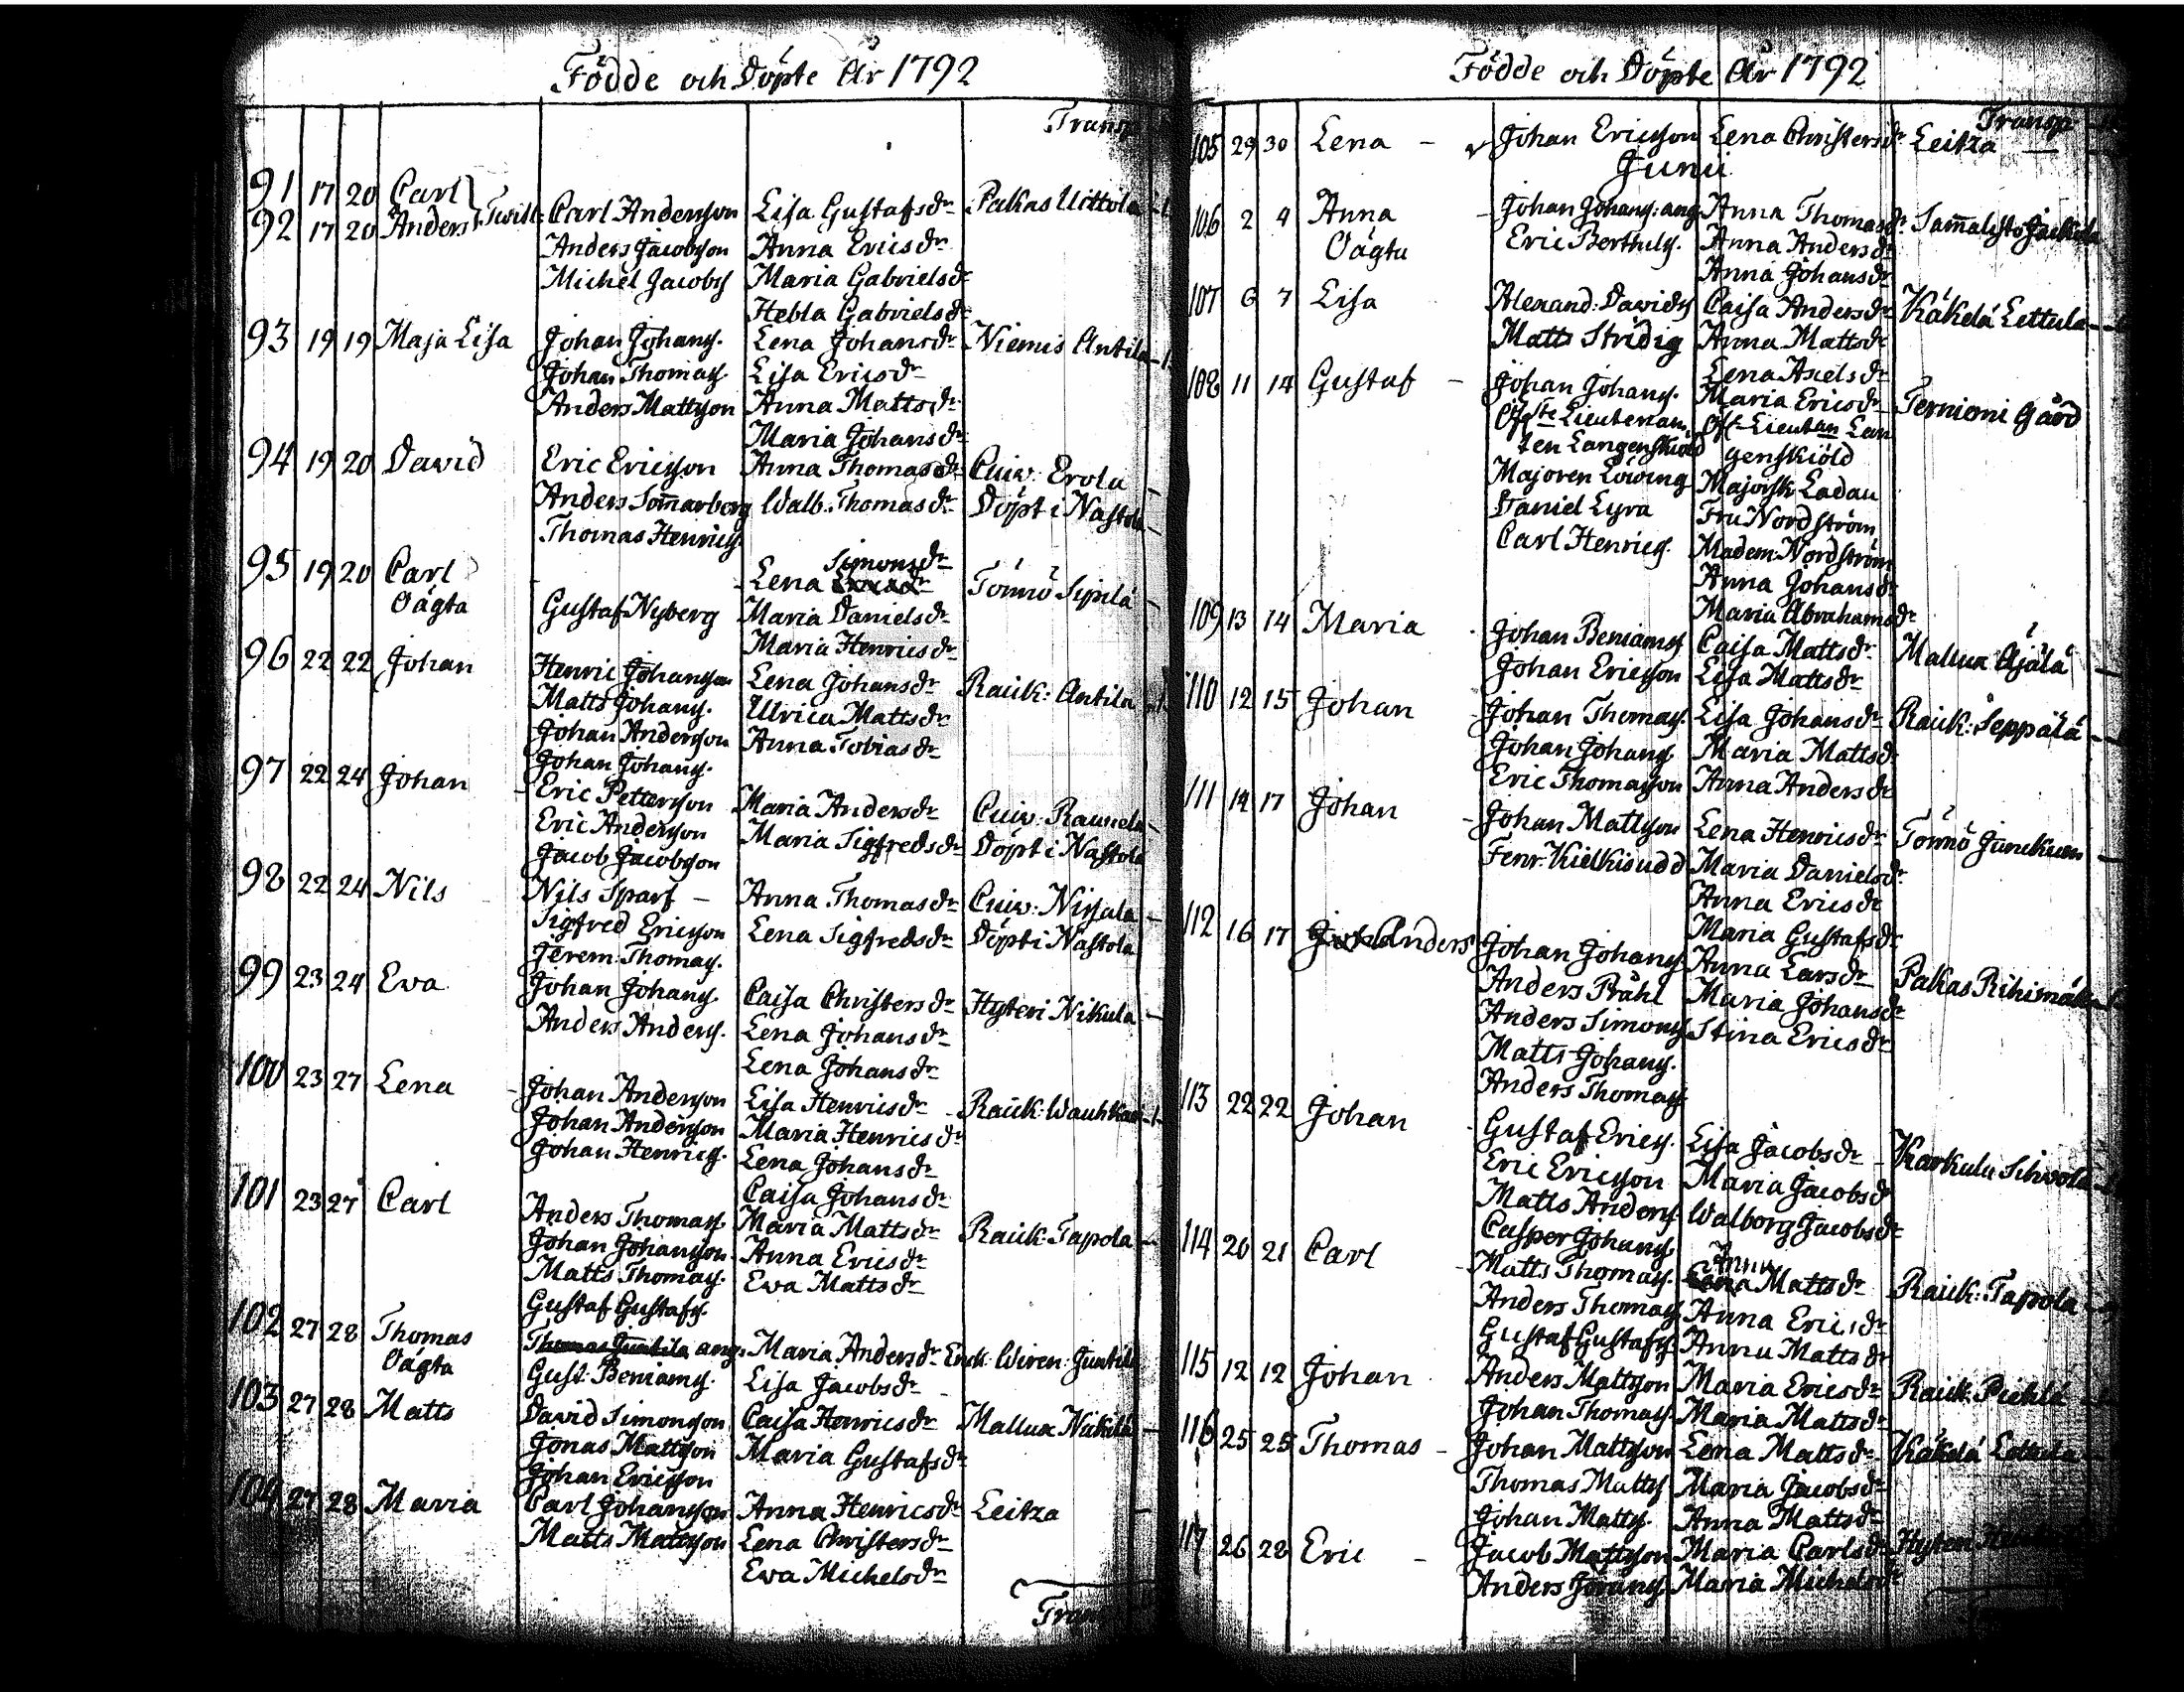 Födde och Döpte År 1792
Transp
91 17 20 Carl
92 17 20 Anders Twill: Carl Andersson Lisa Gustafsdr Pakas Uottola
Anders Jacobsson Anna Ericsdr
Michel Jacobs Maria Gabrielsdr
Hebla Gabrielsdr
93 19 19 Maja Lisa Johan Johans. Lena Johansdr Niemis Antila
Johan Thomas. Lisa Ericsdr
Anders Mattsson Anna Mattsdr
Maria Johansdr
94 19 20 David Eric Ericsson Anna Thomasdr Cuiw: Erola
Anders Som̄arberg Walb. Thomasdr Döpt i Nastola
Thomas Henrics.
Simonsdr
95 19 20 Carl Lena Tömiö Sipilä
Oägta Gustaf Nyberg Maria Danielsdr
Maria Henricsdr
96 22 22 Johan Henric Johansson Lena Johansdr Rauk: Antila
Matts Johans. Ulrica Mattsdr
Johan Andersson Anna Tobiasdr
Johan Johans.
97 22 24 Johan Eric Pettersson Maria Andersdr Cuiw: Rausela
Eric Andersson Maria Sigfredsdr Döpt i Nastola
Jacob Jacobsson
98 22 24 Nils Nils Sparf – Anna Thomasdr Cuiw: Nirjala
Sigfred Ericsson Lena Sigfredsdr Döpt i Nastola
Jerem: Thomas.
99 23 24 Eva Johan Johans. Caisa Christersdr Hyteri Nikula
Anders Anders. Lena Johansdr
Lena Johansdr
100 23 27 Lena Johan Andersson Lisa Henricsdr Rauk: Wauhkan
Johan Andersson Maria Henricsdr
Johan Henrics. Lena Johansdr
Caisa Johansdr
101 23 27 Carl Anders Thomas. Maria Mattsdr Rauk: Tapola
Johan Johansson Anna Ericsdr
Matts Thomas. Ewa Mattsdr
Gustaf Gustafs.
102 27 28 Thomas Thomas Juntila ang. Maria Andersdr Enk: Wiren: Juntila
Oägta Gust: Beniams. Lisa Jacobsdr
103 27 28 Matts David Simonsson Caisa Henricsdr Mallux Nickilä
Jonas Mattsson Maria Gustafsdr
Johan Ericsson
104 27 28 Maria Carl Johansson Anna Henricsdr Leitza
Matts Mattsson Lena Christersdr
Ewa Michelsdr
Födde och Döpte År 1792
Transp
105 29 30 Lena – Johan Ericsson Lena Christersdr Leitza
Junii
106 2 4 Anna Johan Johans: ang. Anna Thomasdr
Oägta Eric Berthels. Anna Andersdr
Anna Johansdr
107 6 7 Lisa Alexand: Davids Caisa Andersdr Käkelä Lettula
Matts Stridig Anna Mattsdr
Lena Axelsdr
108 11 14 Gustaf – Johan Johans. Maria Ericsdr Terniemi Gård
Öfste Lieutenan Öf: Lieutan Lan
ten Langenskiöld genskiöld
Majoren Löwing Majorsk Ladau
Daniel Lyra Fru Nordström
Carl Henrics. Madem: Nordström
Anna Johansdr
Maria Abrahamsdr
109 13 14 Maria Johan Beniams Caisa Mattsdr Mallux Äjälä
Johan Ericsson Lisa Mattsdr
110 12 15 Johan Johan Thomas. Lisa Johansdr Rauk: Seppälä
Johan Johans. Maria Mattsdr
Eric Thomasson Anna Andersdr
111 14 17 Johan Johan Mattsson Lena Henricsdr Tömiö Junckuen
Fenr: Kielkisudd Maria Danielsdr
Anna Ericsdr
Maria Gustafsdr
112 16 17 Anders Johan Johans Anna Larsdr Pakas Rihimäki
Anders Påhl Maria Johansdr
Anders Simons Stina Ericsdr
Matts Johans.
Anders Thomas
113 22 22 Johan Gustaf Erics. Lisa Jacobsdr Karkulu Sihvola
Eric Ericsson Maria Jacobsdr
Matts Anders Walborg Jacobsdr
Casper Johans.
Anna
114 26 21 Carl Matts Thomas. Mattsdr Rauk: Tapola
Anders Thomas Anna Ericsdr
Gustaf Gustafs. Anna Mattsdr
115 12 12 Johan Anders Mattsson Maria Ericsdr Rauk: Piehlä
Johan Thomas. Maria Mattsdr
116 25 25 Thomas – Johan Mattsson Lena Mattsdr Käkelä Lettula
Thomas Matts Maria Jacobsdr
Johan Matts. Anna Mattsdr
117 26 28 Eric – Jacob Mattsson Maria Carlsdr Hyteri
Anders Jörans. Maria Michelsdr